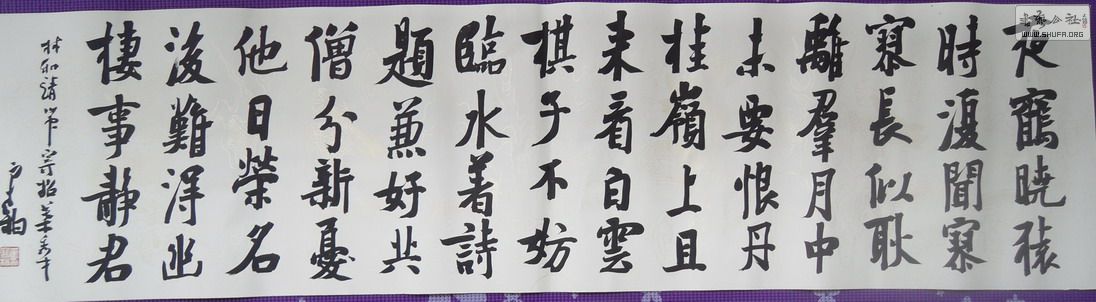 夜鶴曉猿
時復聞寥
寥長似耿
離羣月中
未要恨丹
桂嶺上且
来看白雲
棋子不妨
臨水着詩
題兼好共
僧分新憂
他日榮名
後難得幽
棲事静君
林和靖山中寄招葉秀才
书法公社
WWW.SHUFA.ORG